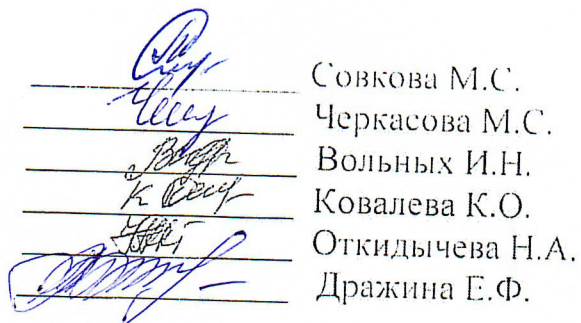 Совкова М.С.
Черкасова М.С.
Вольных И.Н.
Ковалева К.О.
Откидычева Н.А.
Дражина Е.Ф.